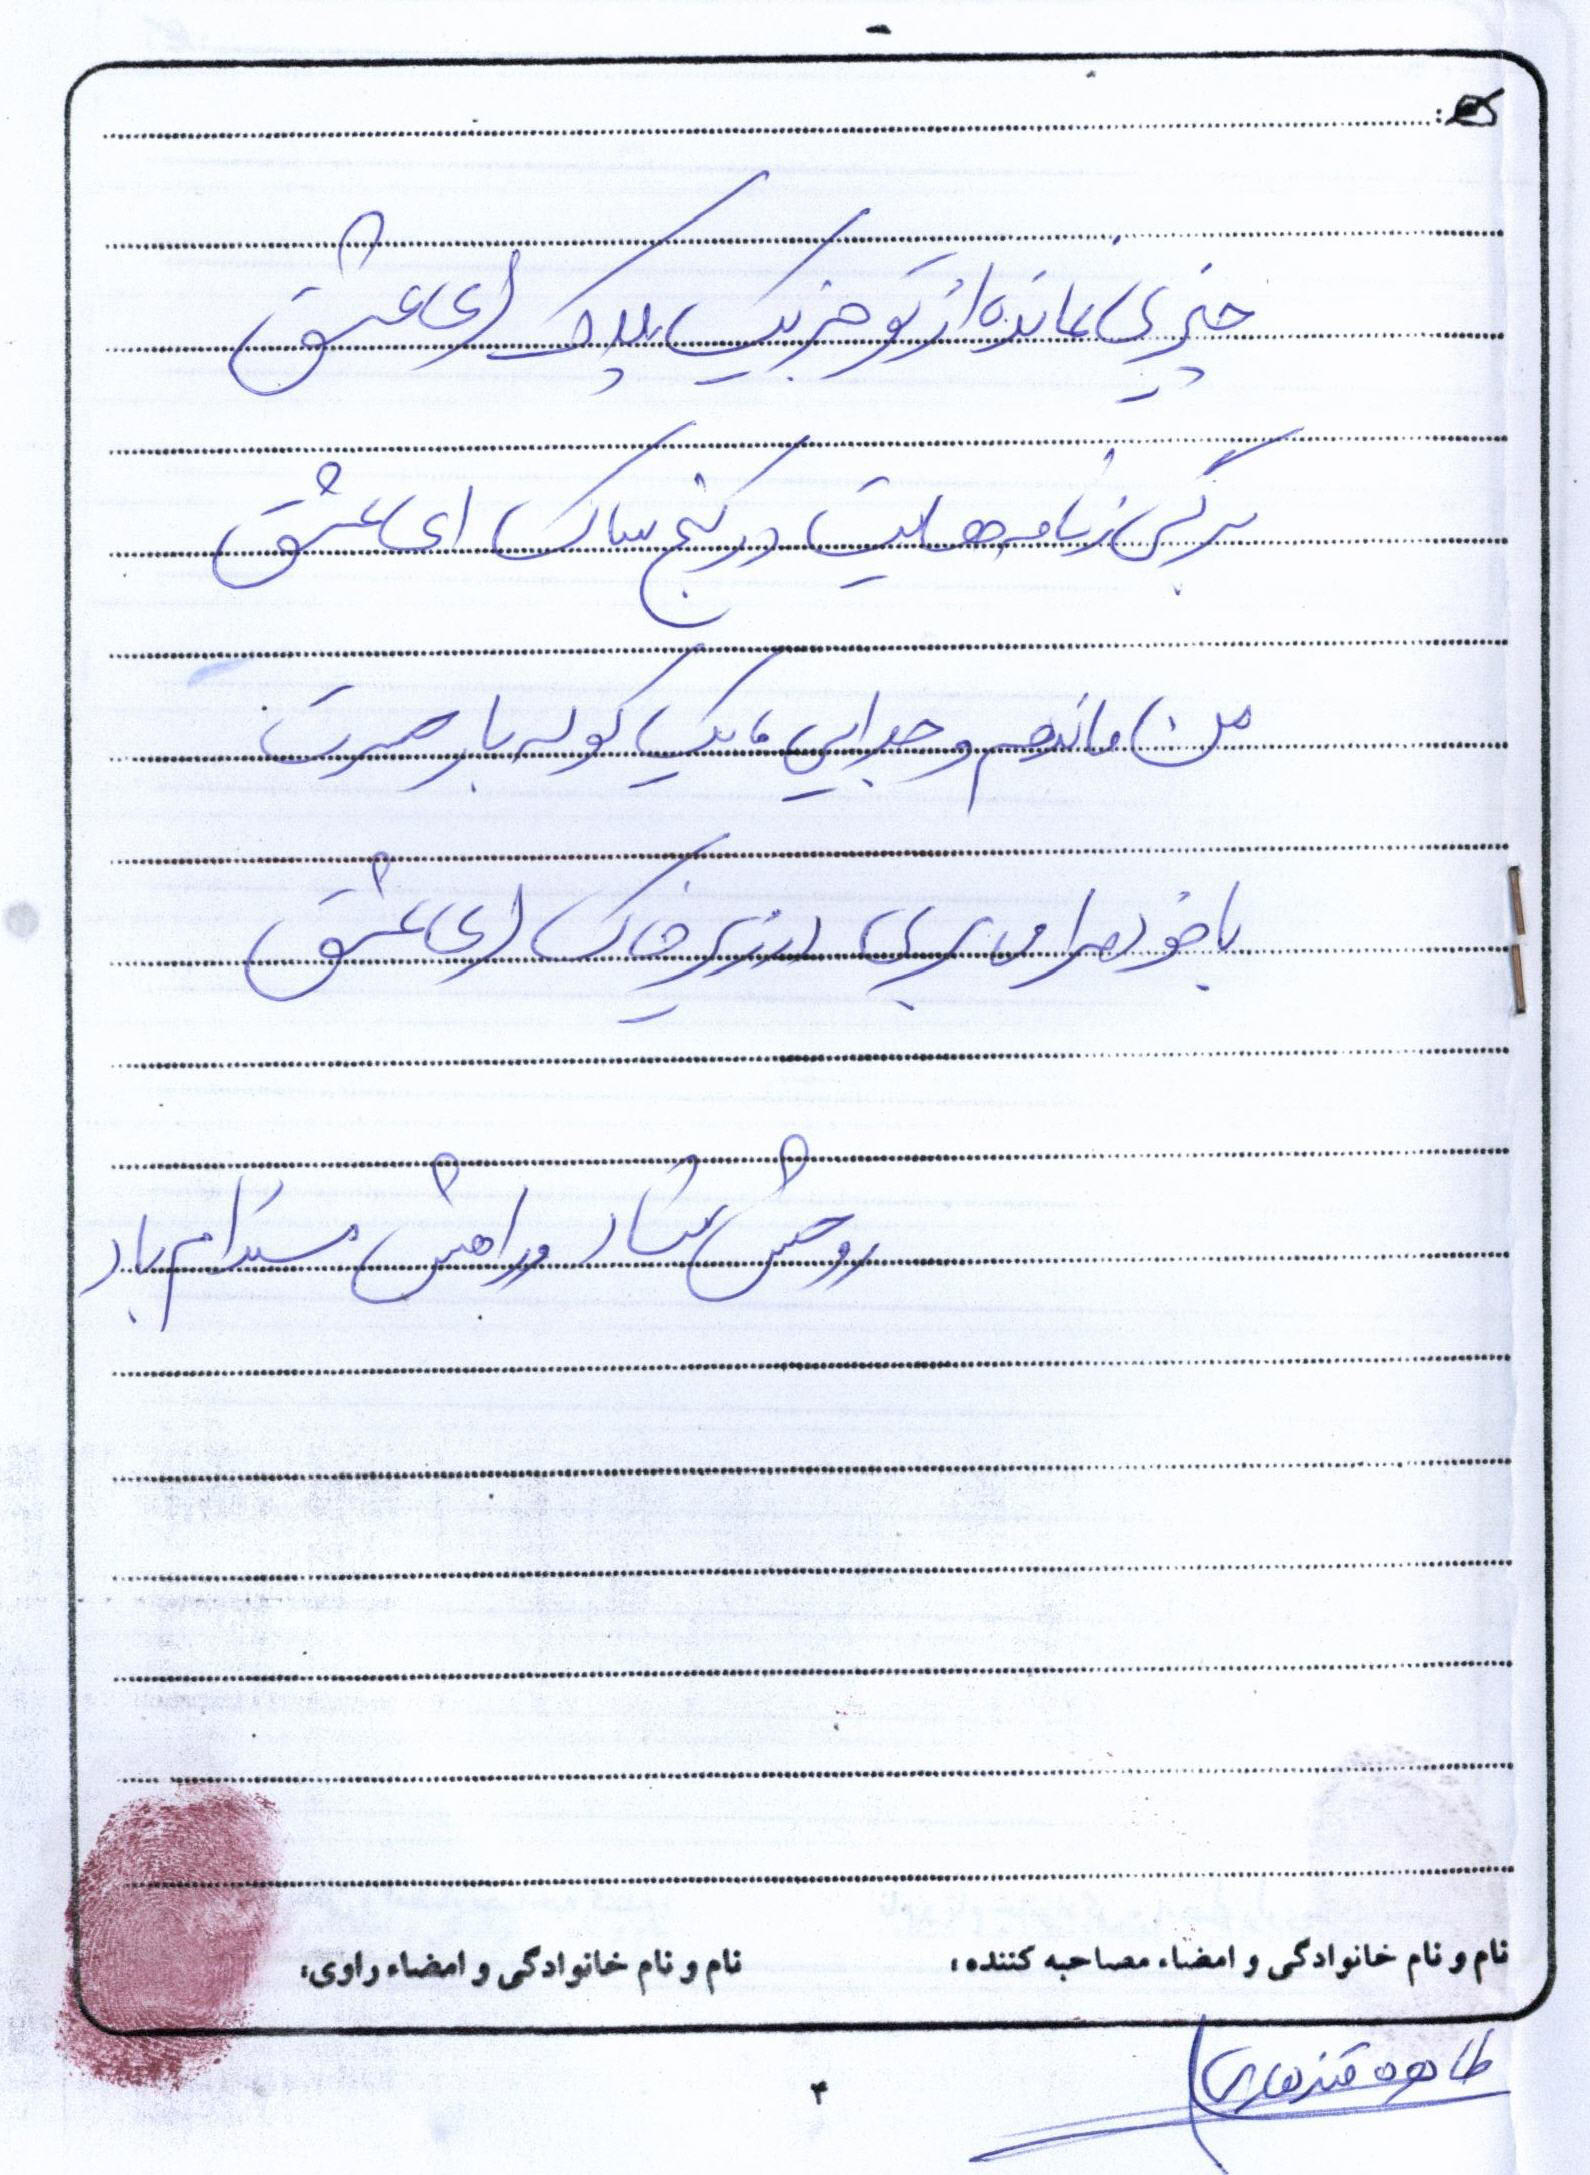 چیزی نمانده از تو جز یک پلاک ای عشق
برگی ز نامه هایت در کنج ساک ای عشق
من ماندم و جدایی با یک کوله بار حسرت
با خود مرا می بری در زیر خاک ای عشق
روحش شاد و راهش مستدام باد
نام و نام خانوادگی و امضاء مصاحبه کننده:
نام و نام خانوادگی و امضاء راوی:
طاهره قندهاری
۴